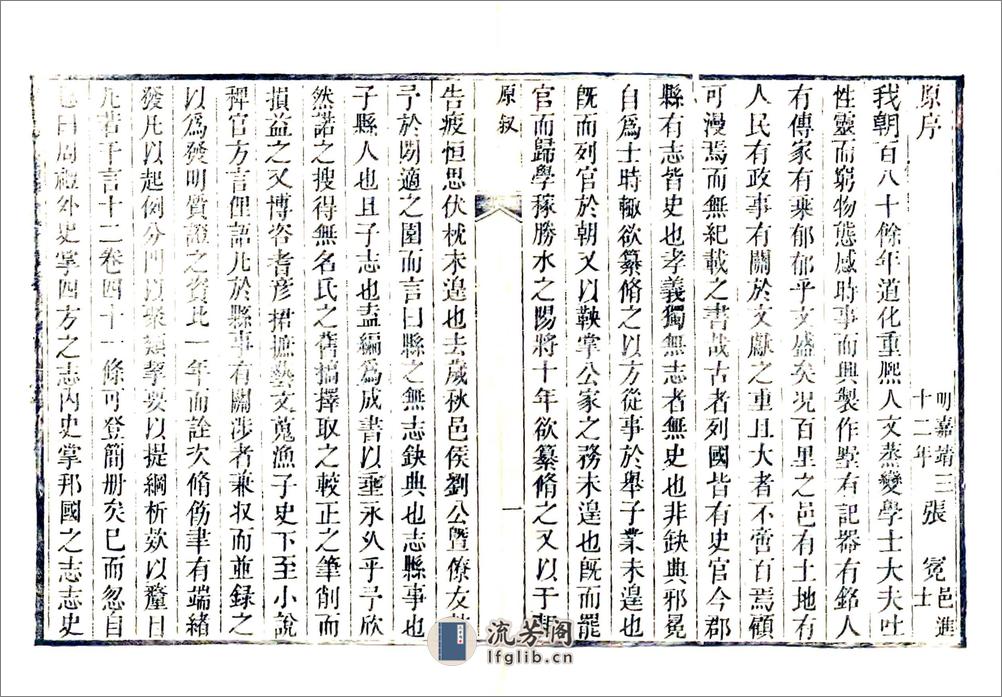 原序
明嘉靖三十二年 張冕 邑進士
我朝百八十餘年道化重熙人文蒸變學士大夫吐
性靈而窮物態感時事而興製作墅有記器有銘人
有傳家有乘郁郁乎文盛矣况百里之邑有土地有
人民有政事有關於文獻之重且大者不啻百焉顧
可漫焉而無紀載之書哉古者列國皆有史官今郡
縣有志皆史也孝義獨無志者無史也非缺典邪冕
自為士時輙欲纂脩之以方從事於舉子業未遑也
旣而列官於朝又以鞅掌公家之務未遑也旣而罷
官而歸學稼勝水之陽將十年欲纂脩之又以于
原叙
一
告疲恒思伏枕未遑也去歲秋邑侯劉公曁僚友
予於閒適之園而言曰縣之無志缺典也志縣事也
子縣人也且子志也盍編為成書以垂永久乎予欣
然諾之搜得無名氏之舊摘擇取之較正之筆削而
損益之又博咨耆彦捃摭藝文蒐漁子史下至小說
稗官方言俚語凡於縣事有關涉者兼収而並録之
以為發明質證之資比一年而詮次脩飭聿有端緒
發凡以起例分門以聚類挈要以提綱析欵以釐目
凡若干言十二卷四十一條可登簡册矣已而忽自
思曰周禮外史掌四方之志内史掌邦國之志志史
流芳閣
lfglib.cn